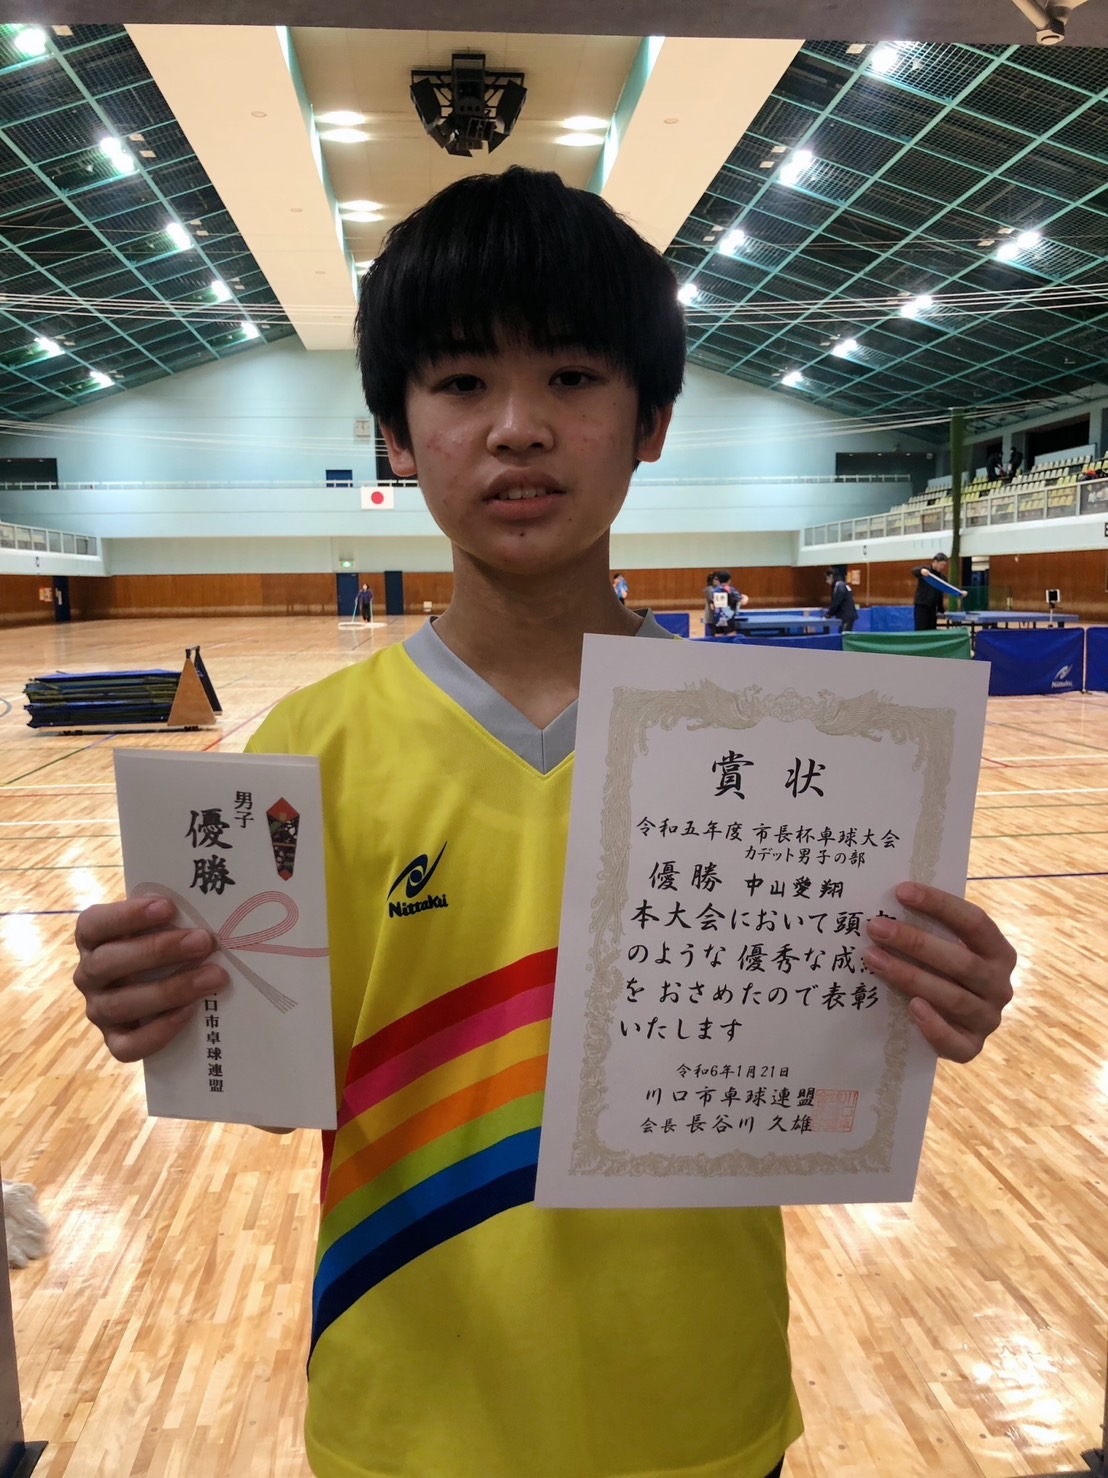 男子
優勝
口市卓球連盟
Nittaku
賞状
令和五年度 市長杯卓球大会
カデット男子の部
優勝 中山愛翔
本大会において頭
のような優秀な成
を おさめたので表彰
いたします
令和6年1月21日
川口市卓球連盟
会長 長谷川 久雄
Nittaku